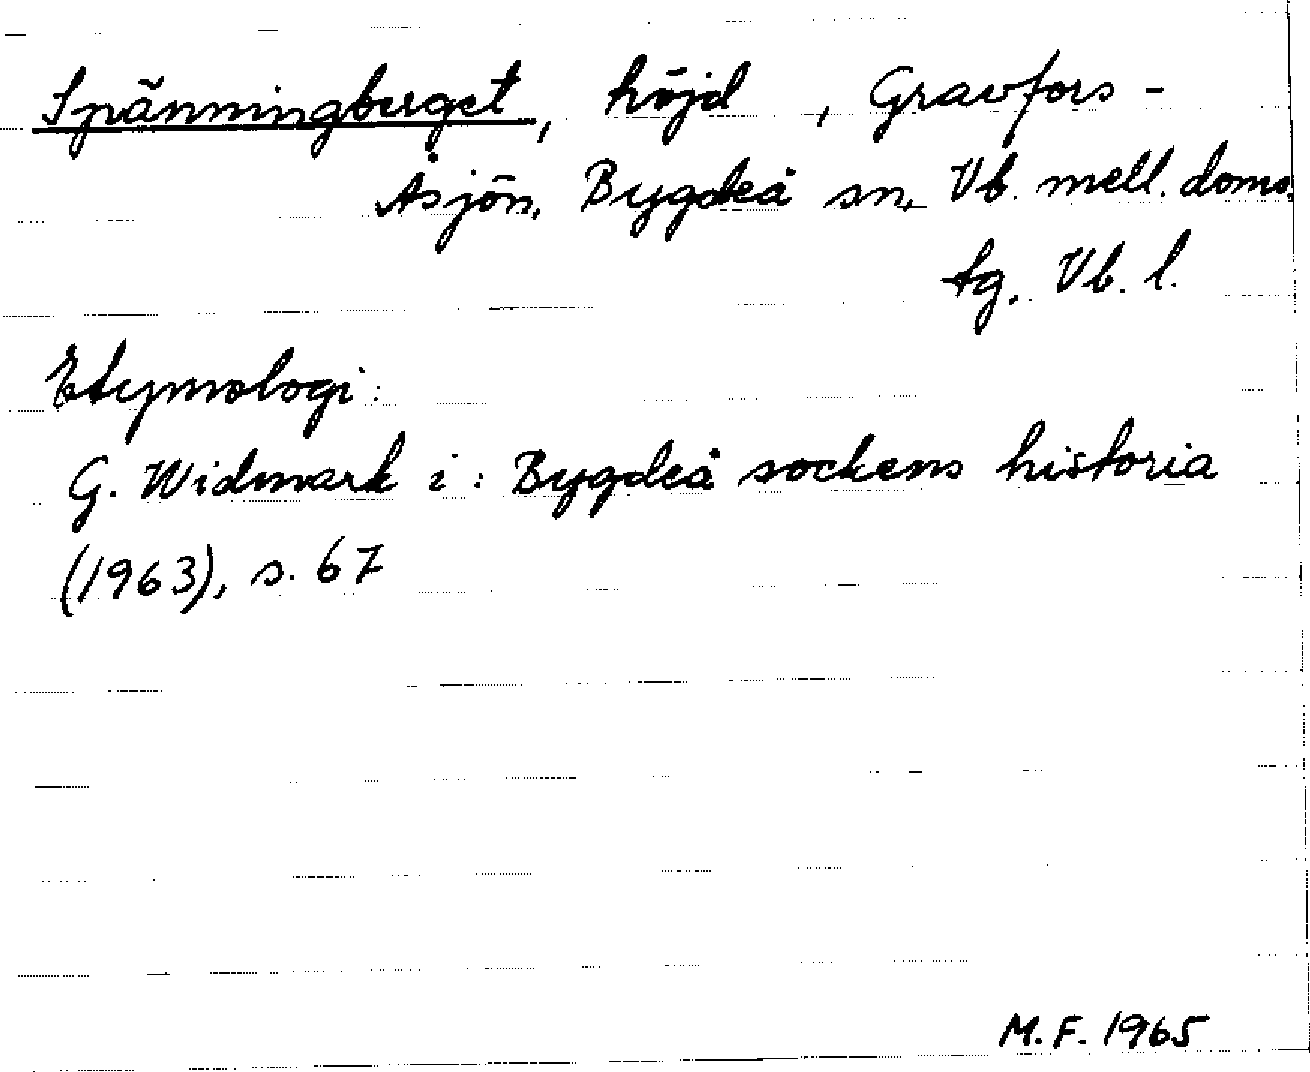 Spänningberget, höjd , Gravfors -
Åsjön, Bygdeå sn, Vb. mell. doms.
tg. Vb. l.
Etymologi:
G. Widmark i : Bygdeå sockens historia
(1963), s. 67
M. F. 1965